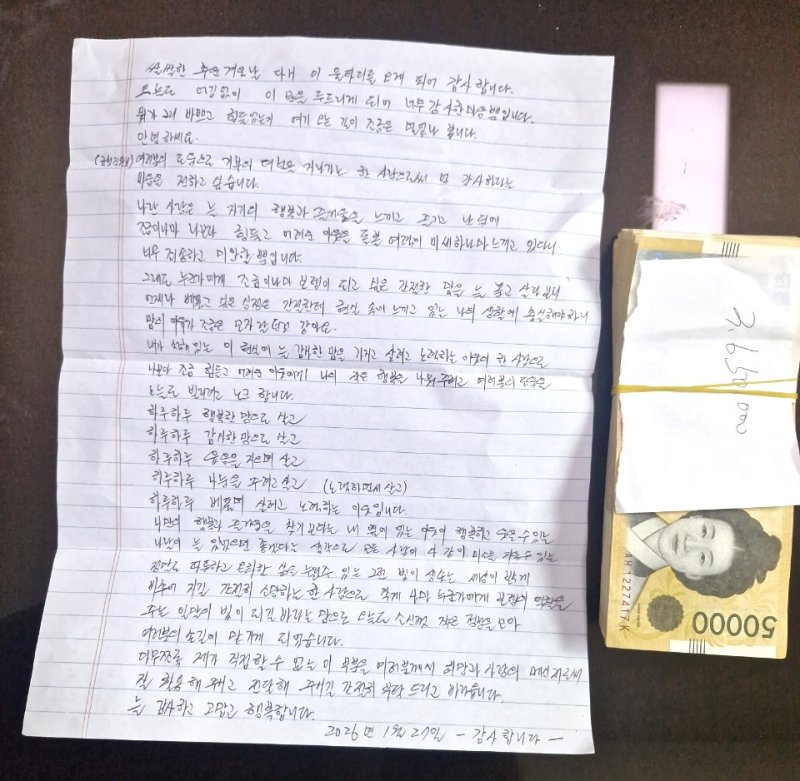 쌀쌀한 추운 겨울날 다시 이 울타리를 오게 되어 감사합니다.
오늘도 어김없이 이 문을 두드리게 되어 너무 감사한 마음뿐입니다.
뭐가 그리 바쁘고 힘들었는지 여기 오는 길이 조금은 멀었나 봅니다.
안녕하세요.
여러분의 도움으로 기부의 대열을 지나가는 한 사람으로써 넘 감사하다는
마음을 전하고 싶습니다.
나란 사람은 늘 자기의 행복과 즐거움을 느끼고 즐기고 난 뒤에
조금이나마 나보다 힘들고 어려운 이웃을 돌본 여력이 미세하나마 느끼고 있다니
너무 죄송하고 미안할 뿐입니다.
그래도 누군가에게 조금이나마 보탬이 되고 싶은 간절한 맘을 늘 품고 살다보니
언제나 베풀고 싶은 심정은 간절한데 현실 속에 느끼고 있는 나의 생활에 충실해야 하니
맘의 여유가 조금은 모자란 것 같아요.
내가 처해 있는 이 현실에 늘 감사한 맘을 가지고 살려고 노력하는 이웃의 한 사람으로
나보다 조금 힘들고 어려운 이웃에게 나의 작은 행복을 나눠 주려고 여러분의 도움을
오늘도 빌리려고 노크 합니다.
하루하루 행복한 맘으로 살고
하루하루 감사한 맘으로 살고
하루하루 웃음을 지으며 살고
하루하루 나눔을 주려고 살고 (노력하면서 살고)
하루하루 베풀며 살려고 노력하는 이웃입니다.
나만의 행복과 즐거움을 찾기 보다는 내 옆에 있는 이웃이 행복하고 웃을 수 있는
나날이 늘 있었으면 좋겠다는 생각으로 모든 사람이 다 같이 미소를 지을 수 있는
정말로 따뜻하고 포근한 삶을 누릴 수 있는 그런 빛이 샘솟는 세상이 쉽게
이루어 지길 간절히 소망하는 한 사람으로 츩 나의 누군가에게 본보기 역할을
주는 일말의 빛이 되길 바라는 맘으로 오늘도 소신껏 작은 정성을 모아
여러분의 손길에 맡기게 되었습니다.
더부분을 제가 직접 할 수 없는 이 부분을 여러분께서 희망과 사랑의 메신저로써
잘 활용해 주시고 전달해 주시길 간절히 부탁 드리고 바랍니다.
늘 감사하고 고맙고 행복합니다.
2026년 1월 27일 - 감사합니다 -
3,650,000
AH1227417K
50000